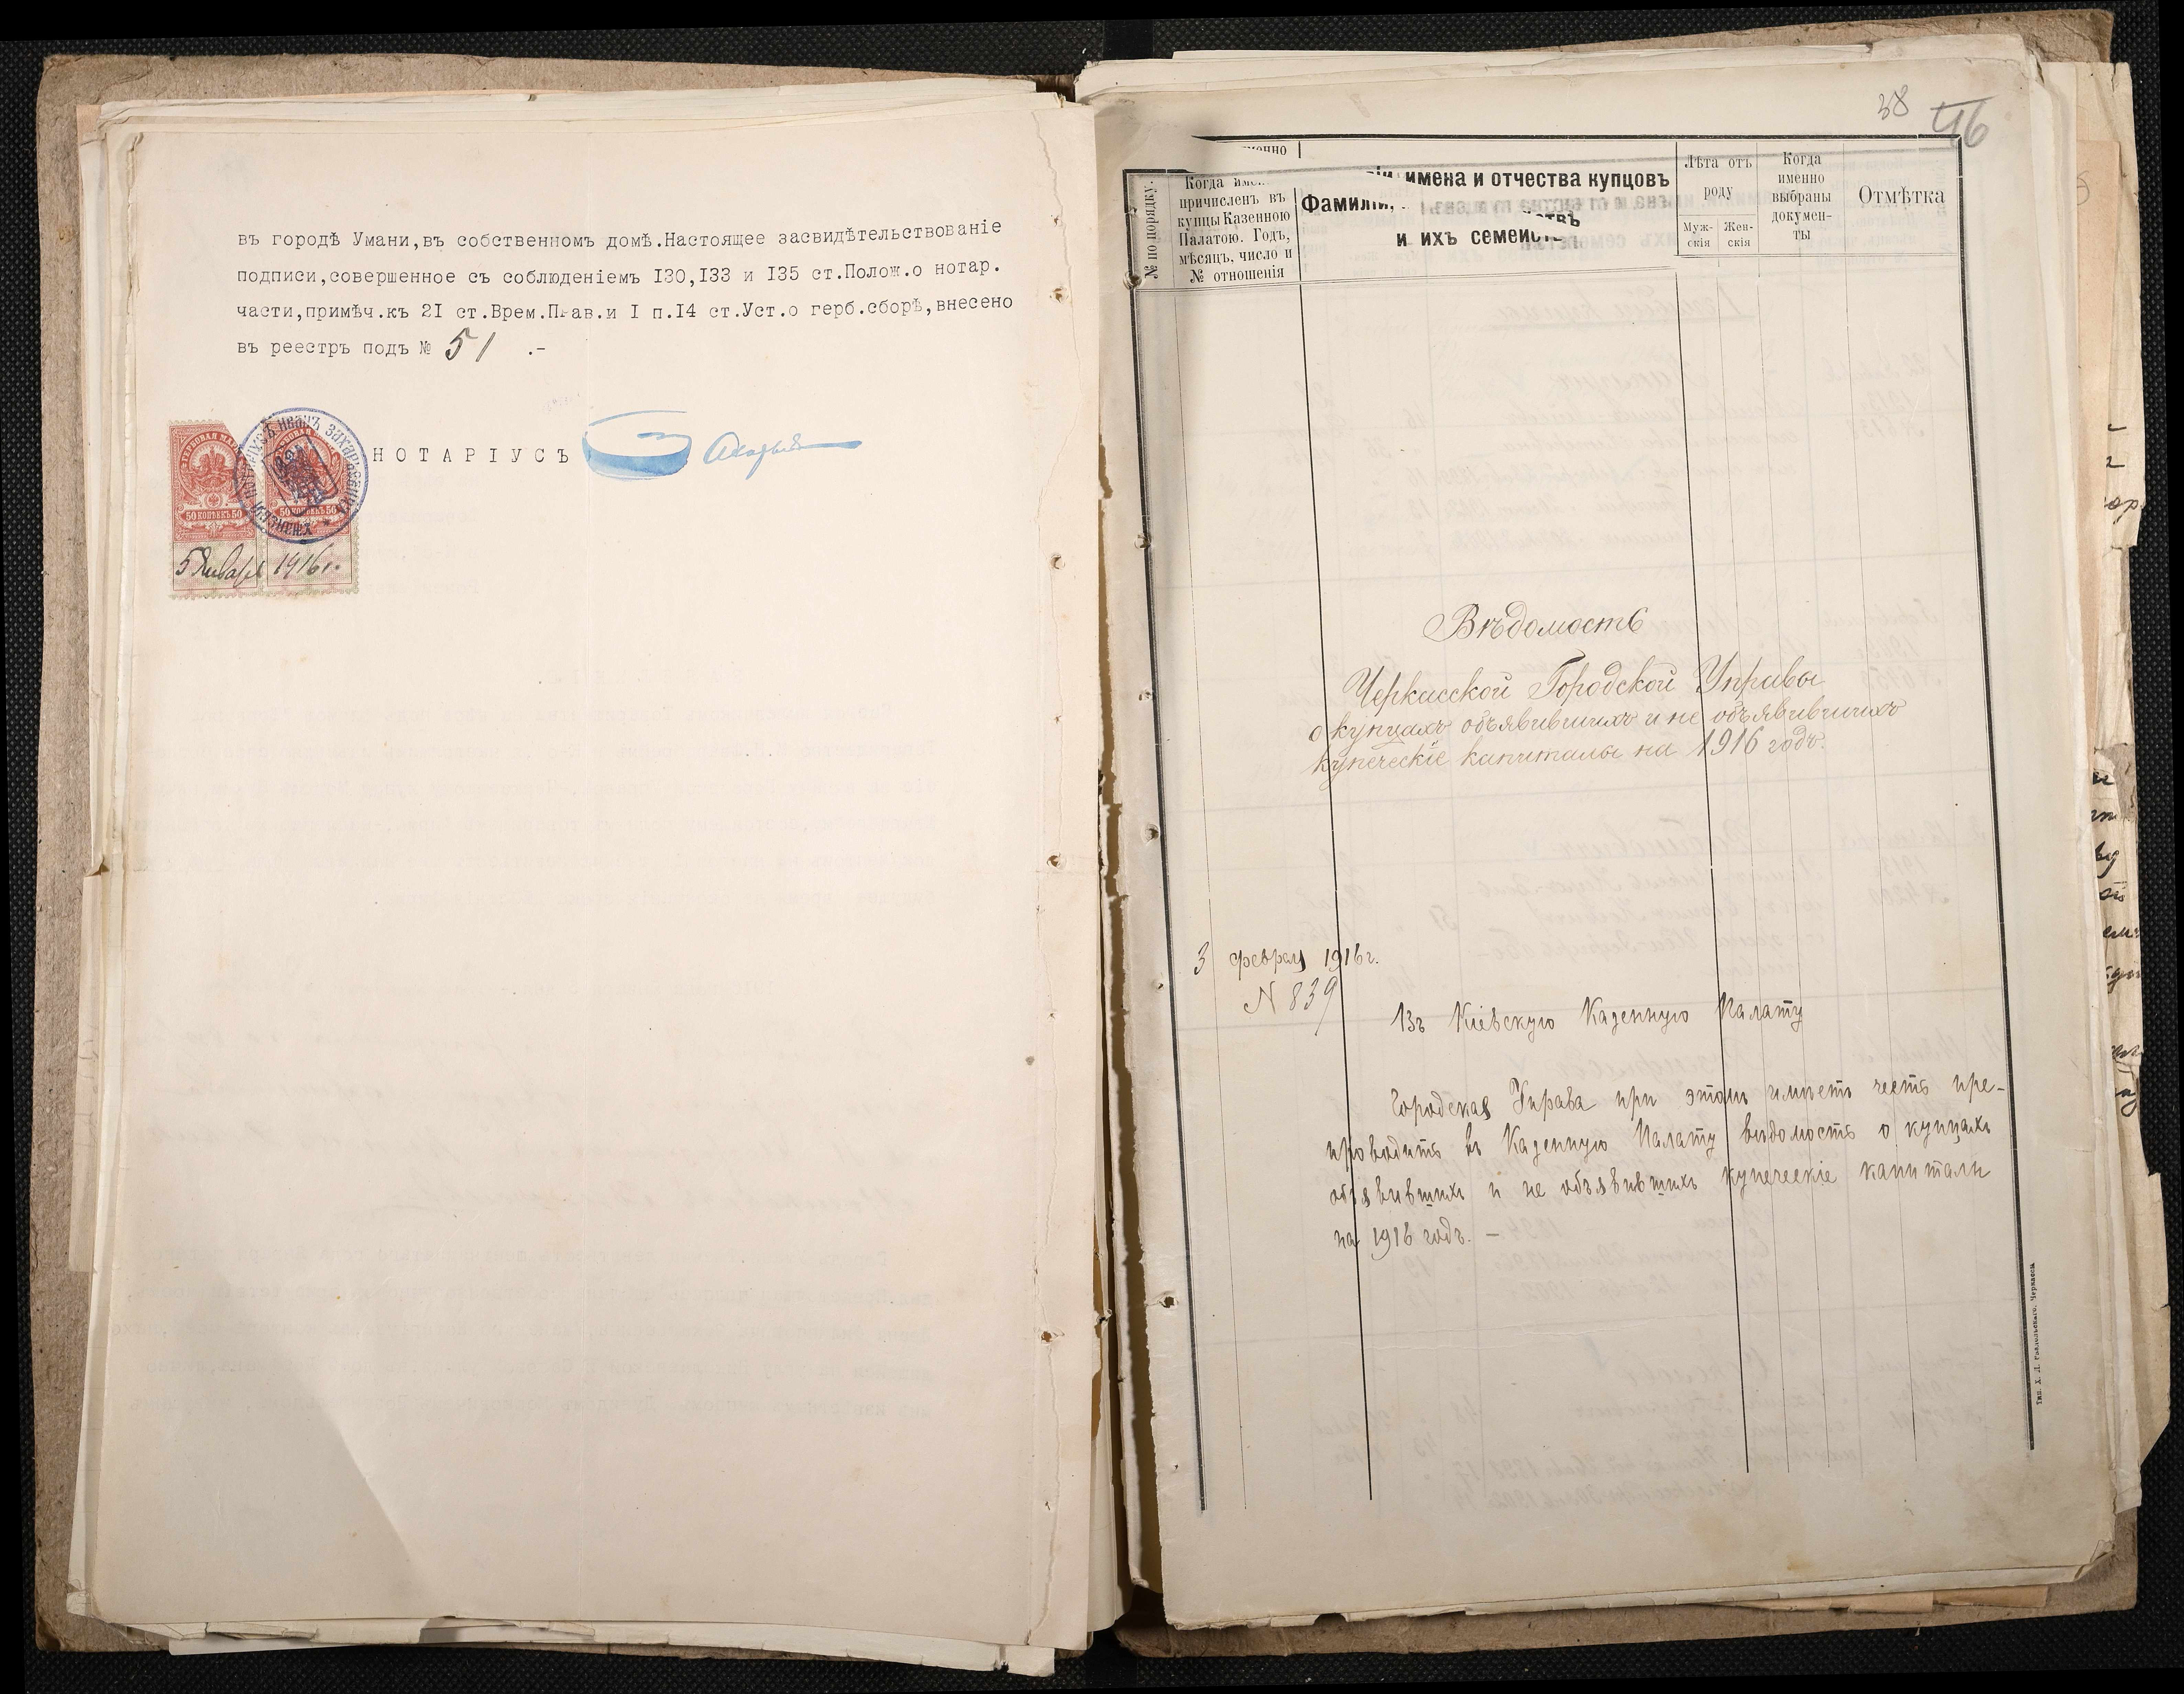 въ городѣ Умани,въ собственномъ домѣ.Настоящее засвидѣтельствованіе
подписи,совершенное съ соблюденіемъ I30,I33 и I35 ст.Полож.о нотар.
части,примѣч.къ 2I ст.Врем.Прав.и I п.I4 ст.Уст.о герб.сборѣ,внесено
въ реестръ подъ № 51 .-
НОТАРІУСЪ
50 КОПѢЕКЪ 50
50 КОПѢЕКЪ 50
5 Января 1916 г.
38
46
№ по порядку.
Когда
причисленъ въ
купцы Казенною
Палатою. Годъ,
мѣсяцъ, число и
№ отношенія
имена и отчества купцовъ
Фамиліи,
и ихъ семействъ
Лѣта отъ
роду
Муж-
скія
Жен-
скія
Когда
именно
выбраны
докумен-
ты
Отмѣтка
Вѣдомость
Черкасской Городской Управы
о купцахъ объявившихъ и не объявившихъ
купеческіе капиталы на 1916 годъ.
3 февраля 1916 г.
N 839
Въ Кіевскую Казенную Палату
Городская Управа при этомъ имѣетъ честь пре-
проводить въ Казенную Палату вѣдомость о купцахъ
объявившихъ и не объявившихъ купеческіе капиталы
на 1916 годъ. —